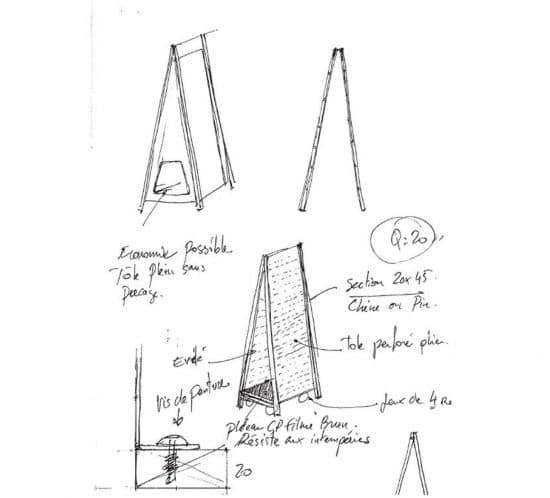 Economie possible
Tôle plein sans
perçage.
Q: 20
section 20x45.
Chêne ou Pin.
Evidé
Tole perforé plier.
Vis de penture
Jeux de 4
plateau CP filmé Brun.
Résiste aux intempéries
20